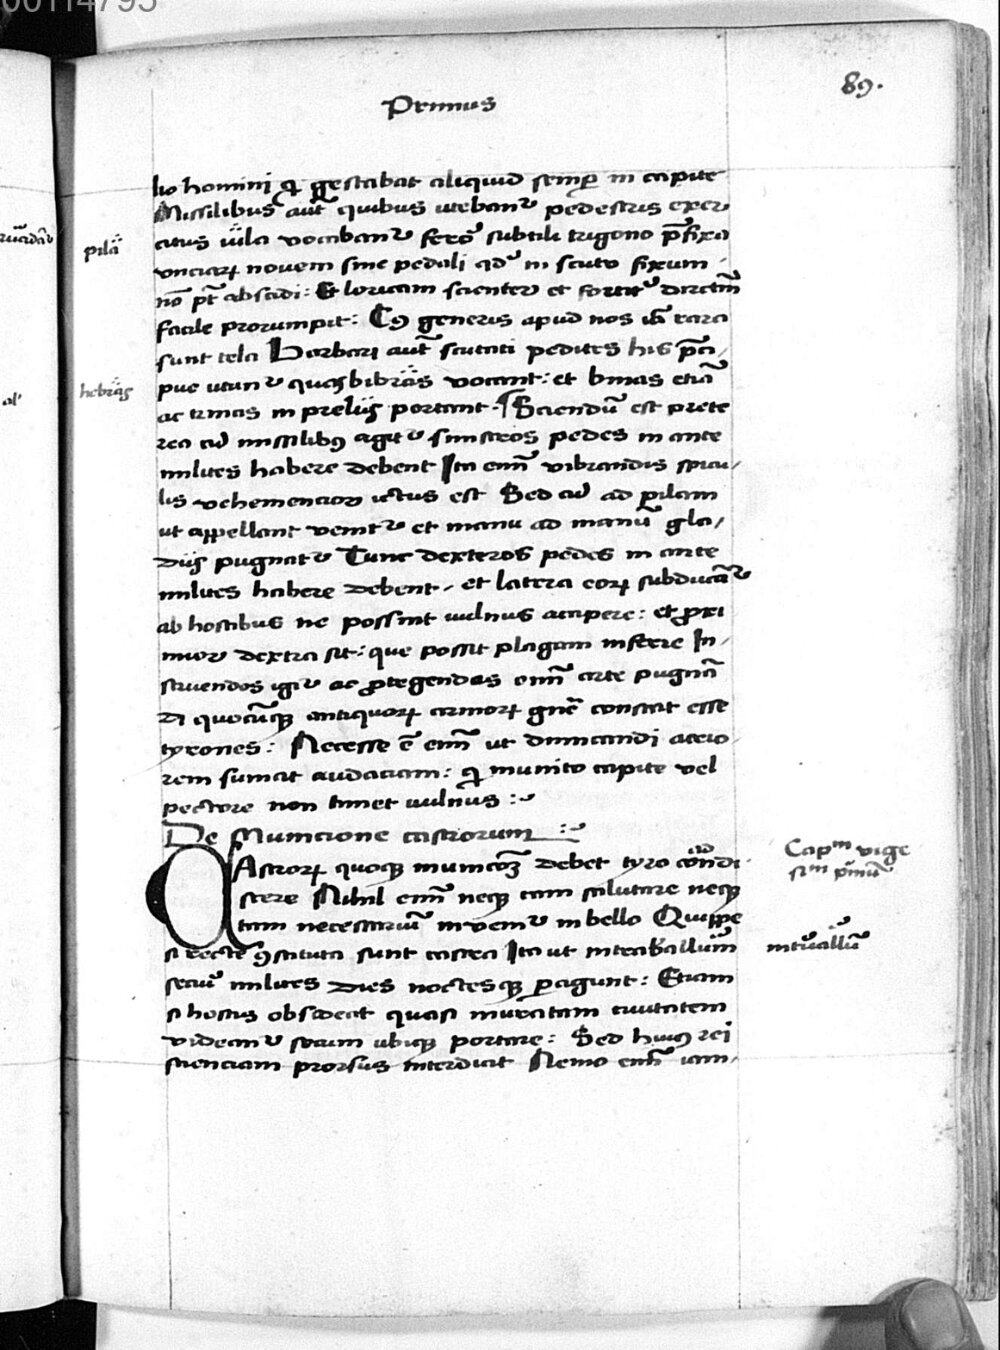 00114795
Primus
89.
lio homini qͥ gestabat aliquid semꝑ in capite
Missilibus aūt quibus utebanᷣ pedestris exer
citus uila vocabanᷣ ferō subtili trigono p̄fixa
unciaꝝ novem sine pedali qd̓ in scuto fixum
nō pōt abscidi : Et loricam scienter et fortitᷣ directū
facile prorumpit : Cꝰ generis apud nos iā rara
sunt tela Barbari aūt scutati pedites his p̄ci,
pue utunᷣ quas bibras vocant : et binas etiā
ac trinas in prelijs portant. Sciendū est prete
rea cū missilibꝰ agitᷣ sinistros pedes in ante
milites habere debent Ita enī vibrandis spicu,
lis vehemencior ictus est Sed cū ad pilam
ut appellant venitᷣ et manu ad manū gla,
dijs pugnatᷣ Tunc dexteros pedes in ante
milites habere debent, et latera eoꝝ subducāᷣ
ab hostibus ne possint vulnus accipere : et ꝓxi
mior dextra sit : que possit plagam inferre In,
struendos igiᷣ ac ꝓtegendos omī arte pugnā
di quocūqꝫ antiquoꝝ armoꝝ gn̄e constat esse
tyrones : Necesse ē enī ut dimicandi acrio
rem sumat audaciam : qͥ munito capite vel
pectore non timet vulnus :
De Municione castrorum :
CAstroꝝ quoqꝫ municōꝫ debet tyro cōndi
scere Nihil enī neqꝫ tam salutare neqꝫ
tam necessariū invenitᷣ in bello Quippe
si recte ꝯstituta sunt castra Ita ut intra vallum
secuᷣ milites dies noctesqꝫ ꝑagunt : Etiam
si hostis obsideat quasi muratam civitatem
videanᷣ secum ubiqꝫ portare : Sed huiꝰ rei
sciencia prorsus interdicit Nemo enī iam,
pila
hebras
Capᵐ vige
siᵐ pͥmū
intᷣuallū
al'